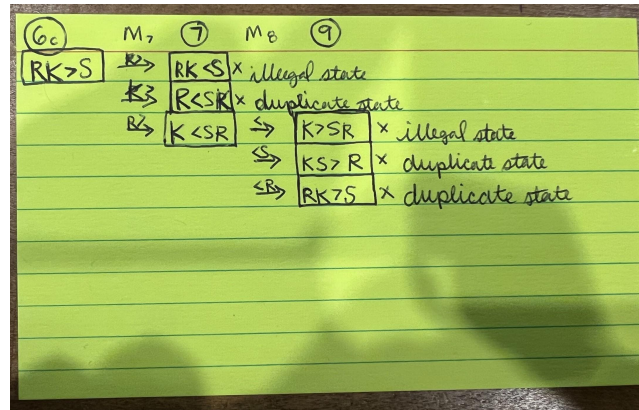 6c M7 7 M8 9
RK>S → RK<S × illegal state
K> R<SK × duplicate state
R> K<SR < K>SR × illegal state
<S KS>R × duplicate state
<R RK>S × duplicate state